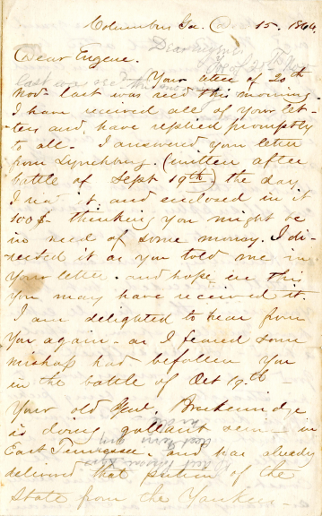 Columbus Ga. Dec 15. 1864.
Dear Eugene.
Your letter of 20th
Nov last was recd this morning.
I have received all of your let-
ters and have replied promptly
to all. I answered you letter
from Lynchburg. (written after
battle of Sept 19th) the day
I rec'd it and enclosed in it
100$ thinking you might be
in need of some money. I di-
rected it as you told me in
your letter. and hope in this
you may have received it.
I am delighted to hear from
you again - as I feared some
mishap had befallen you
in the battle of Oct 19th
Your old Genl. Breckenridge
is doing gallant service in
East Tennessee. and has already
delivered that portion of the
State from the Yankees.